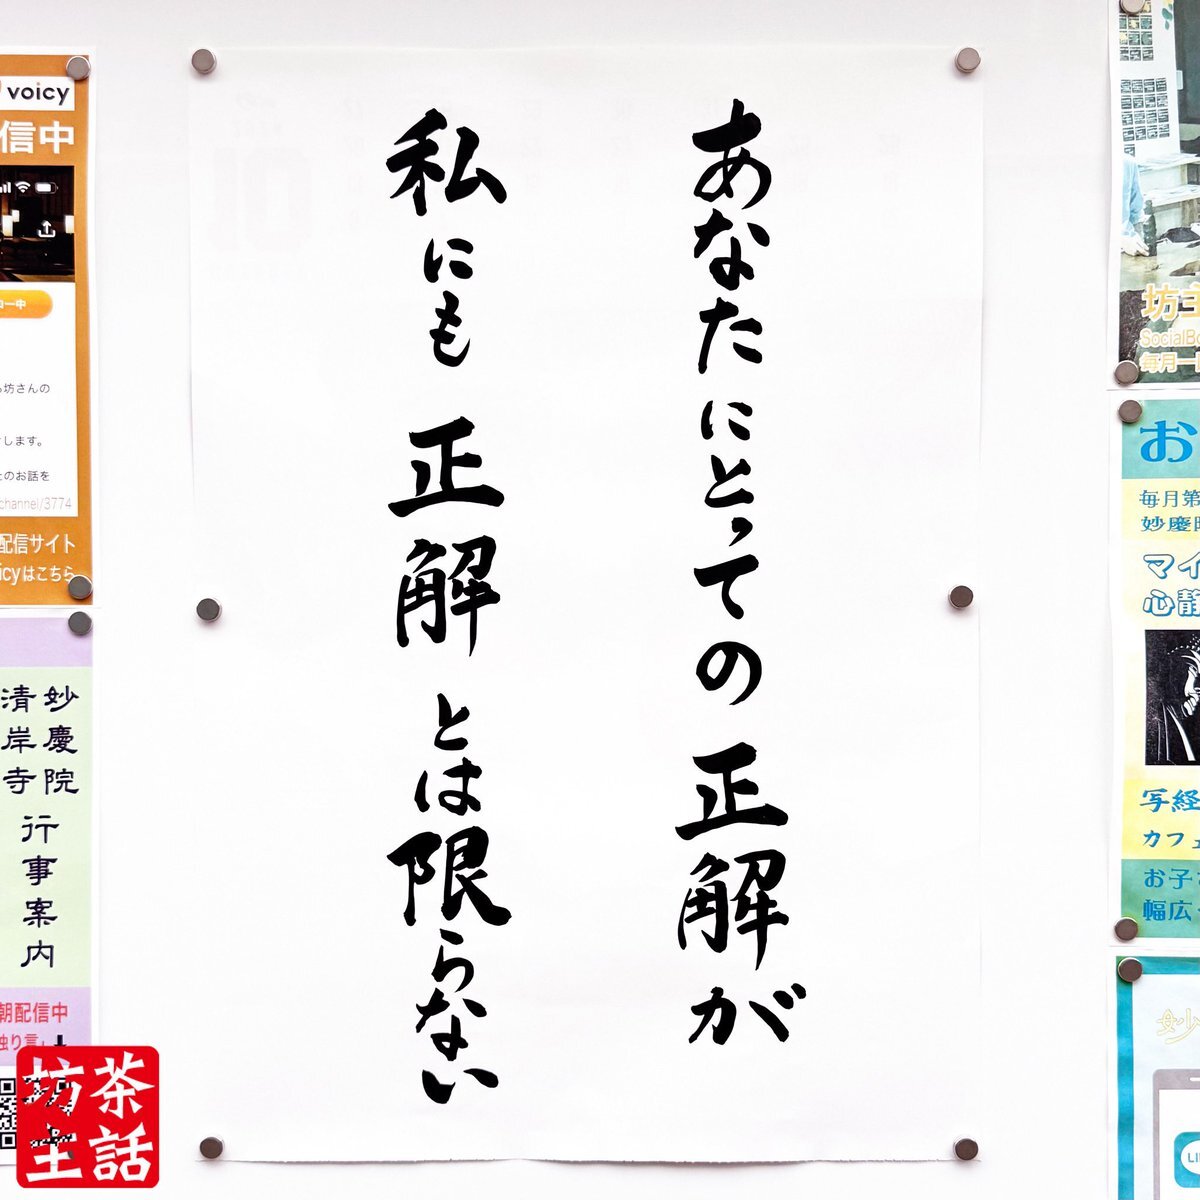 あなたにとっての正解が
私にも正解とは限らない
voicy
信中
坊さんの
します。
のお話を
channel/3774
配信サイト
icyはこちら
妙慶院
清岸寺
行事案内
朝配信中
独り言」
茶話
坊主
坊主
SocialBo
毎月一
お
毎月第
妙慶
マイ
心静
写経
カフェ
お子
幅広
妙
LI